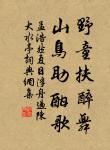 野童扶醉舞
山鳥助酣歌
孟浩然夏日浮舟過陳
大水亭詞典網集